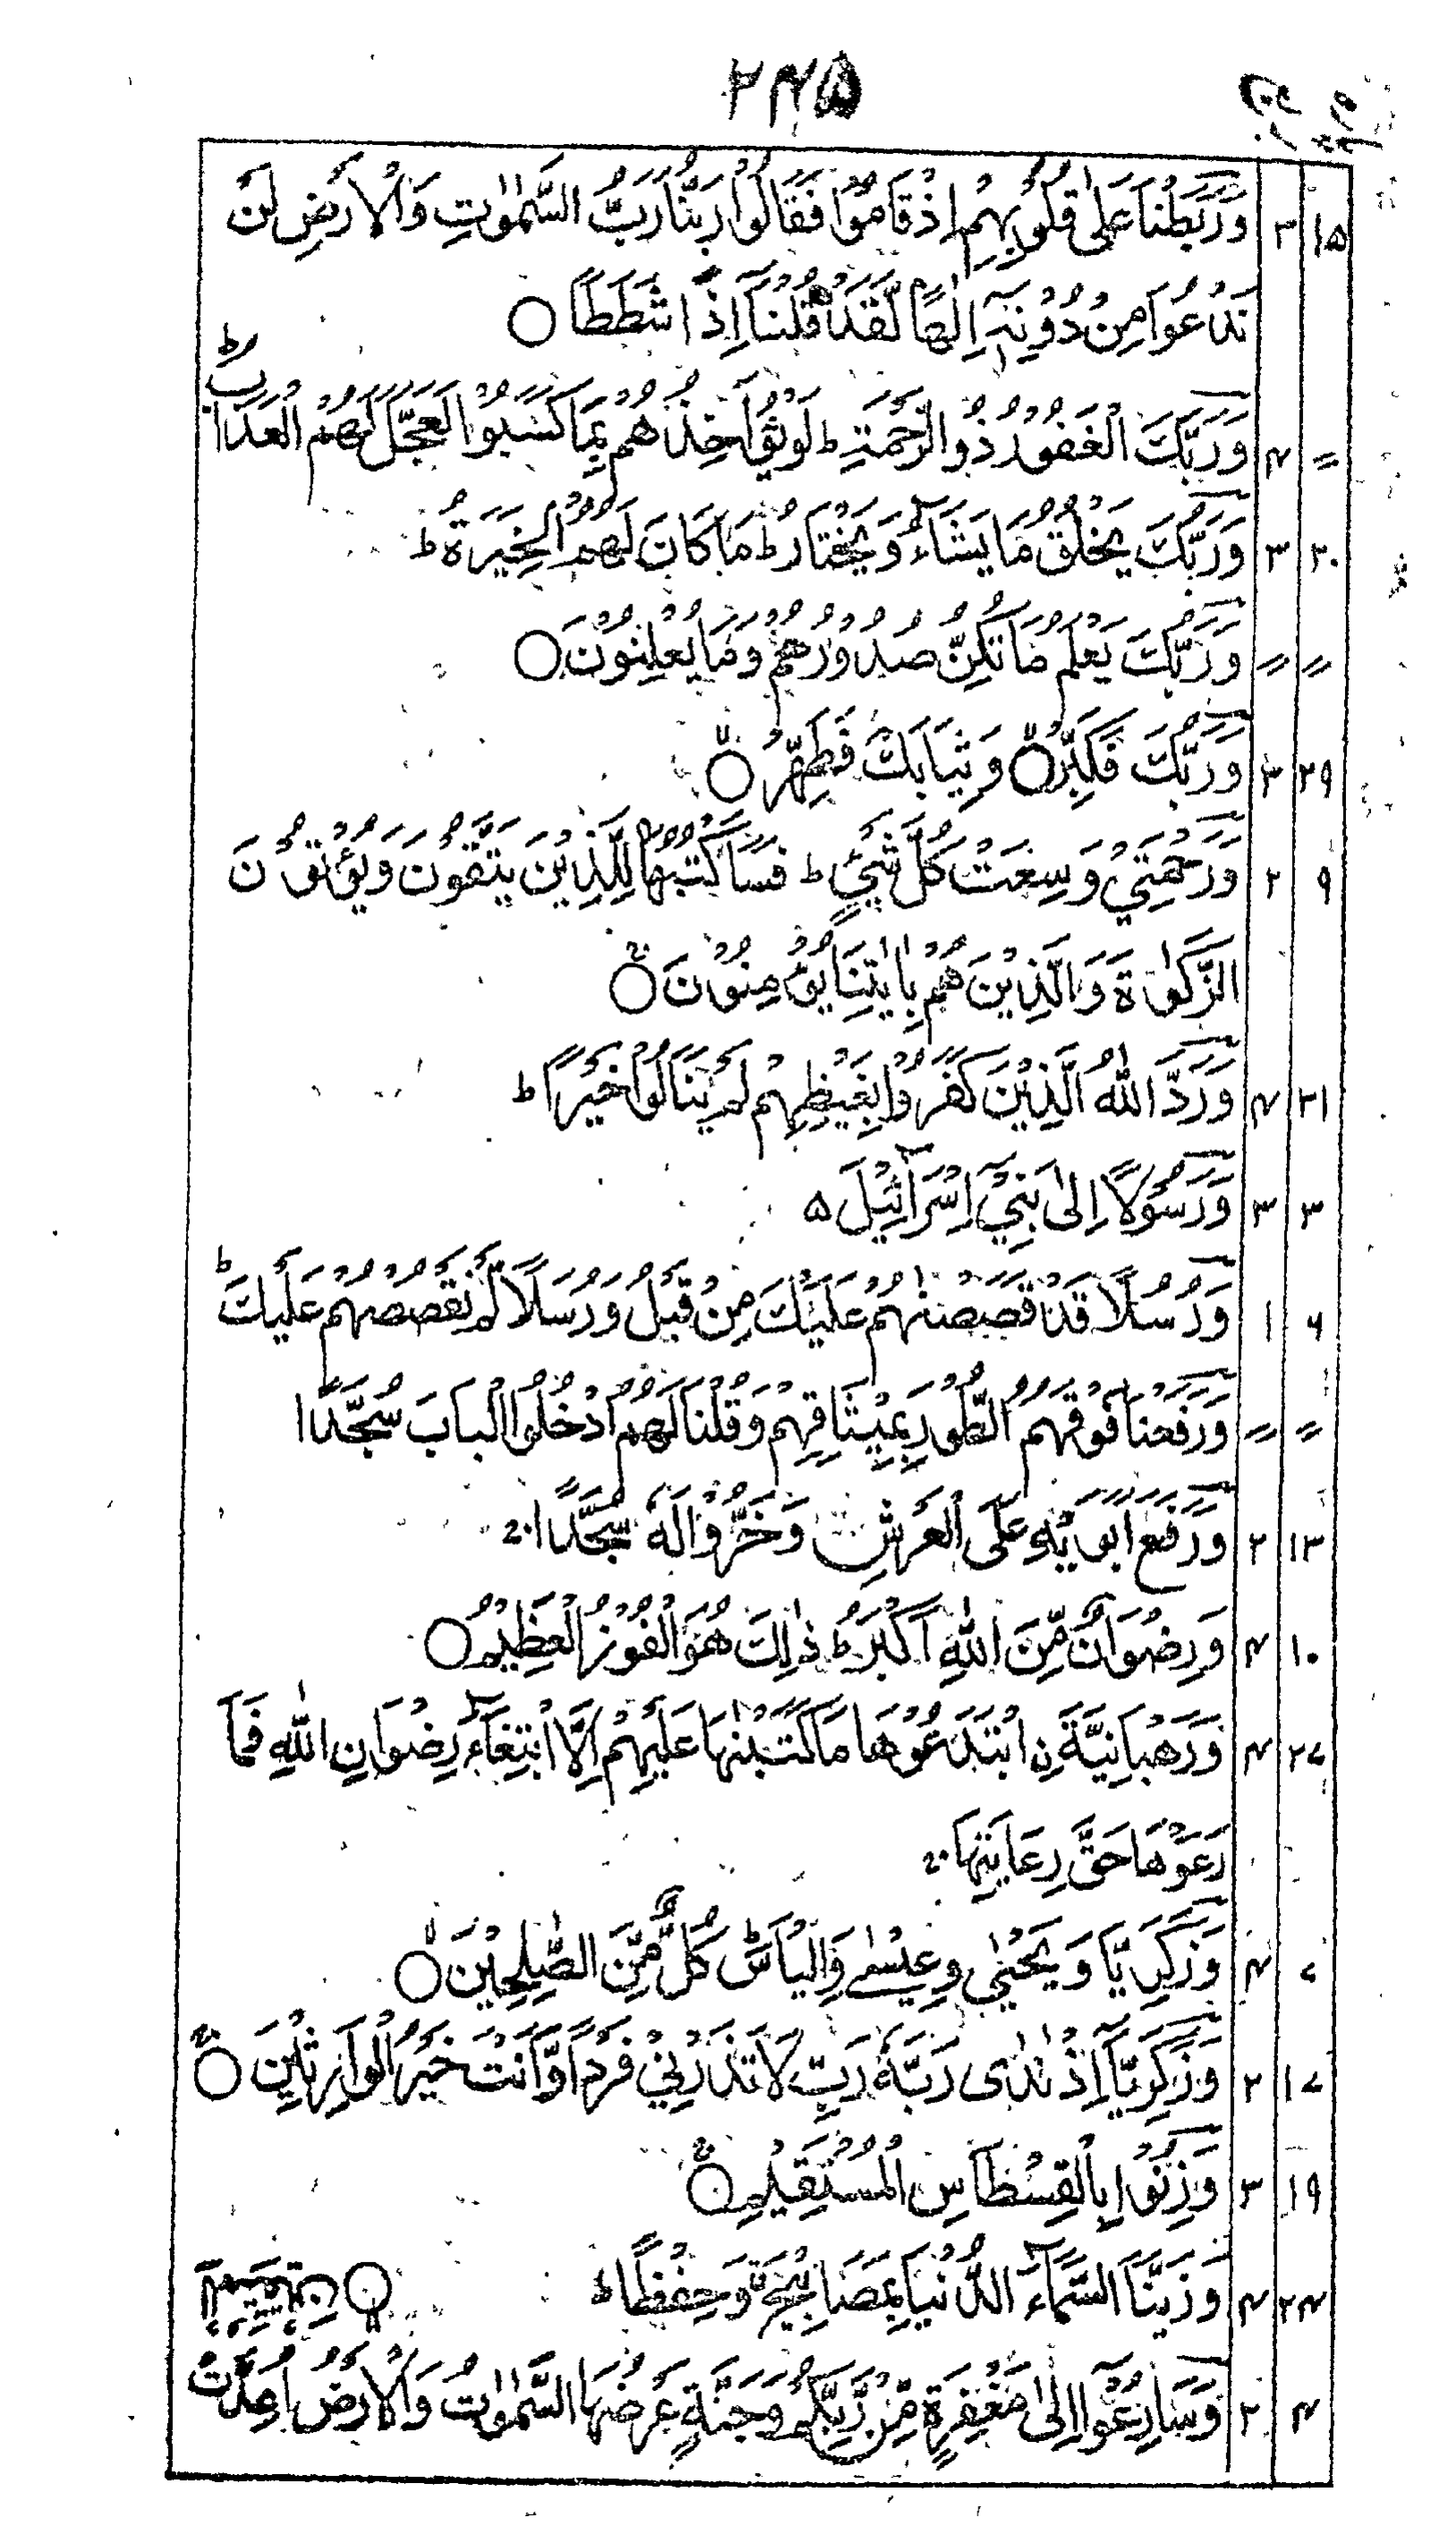 ۲۴۵
۱۵ ۳ وَرَبَطْنَا عَلٰى قُلُوْبِهِمْ اِذْ قَامُوْا فَقَالُوْا رَبُّنَا رَبُّ السَّمٰوٰتِ وَالْاَرْضِ لَنْ
نَدْعُوَا مِنْ دُوْنِهٖٓ اِلٰهًا لَّقَدْ قُلْنَآ اِذًا شَطَطًا ○
〃 ۴ وَرَبُّكَ الْغَفُوْرُ ذُو الرَّحْمَةِ ط لَوْ يُؤَاخِذُهُمْ بِمَا كَسَبُوْا لَعَجَّلَ لَهُمُ الْعَذَابَ ط
۲۰ ۳ وَرَبُّكَ يَخْلُقُ مَا يَشَآءُ وَيَخْتَارُ ط مَا كَانَ لَهُمُ الْخِيَرَةُ ط
〃 〃 وَرَبُّكَ يَعْلَمُ مَا تُكِنُّ صُدُوْرُهُمْ وَمَا يُعْلِنُوْنَ ○
۲۹ ۳ وَرَبَّكَ فَكَبِّرْ ○ وَثِيَابَكَ فَطَهِّرْ ○
۹ ۲ وَرَحْمَتِيْ وَسِعَتْ كُلَّ شَيْءٍ ط فَسَاَكْتُبُهَا لِلَّذِيْنَ يَتَّقُوْنَ وَيُؤْتُوْنَ
الزَّكٰوةَ وَالَّذِيْنَ هُمْ بِاٰيٰتِنَا يُؤْمِنُوْنَ ○
۲۱ ۴ وَرَدَّ اللّٰهُ الَّذِيْنَ كَفَرُوْا بِغَيْظِهِمْ لَمْ يَنَالُوْا خَيْرًا ط
۳ ۳ وَرَسُوْلًا اِلٰى بَنِيْٓ اِسْرَآئِيْلَ ۵
۶ ۱ وَرُسُلًا قَدْ قَصَصْنٰهُمْ عَلَيْكَ مِنْ قَبْلُ وَرُسُلًا لَّمْ نَقْصُصْهُمْ عَلَيْكَ ط
〃 〃 وَرَفَعْنَا فَوْقَهُمُ الطُّوْرَ بِمِيْثَاقِهِمْ وَقُلْنَا لَهُمُ ادْخُلُوا الْبَابَ سُجَّدًا
۱۳ ۲ وَرَفَعَ اَبَوَيْهِ عَلَى الْعَرْشِ وَخَرُّوْا لَهٗ سُجَّدًا ج
۱۰ ۴ وَرِضْوَانٌ مِّنَ اللّٰهِ اَكْبَرُ ط ذٰلِكَ هُوَ الْفَوْزُ الْعَظِيْمُ ○
۲۷ ۴ وَرَهْبَانِيَّةَ نِ ابْتَدَعُوْهَا مَا كَتَبْنٰهَا عَلَيْهِمْ اِلَّا ابْتِغَآءَ رِضْوَانِ اللّٰهِ فَمَا
رَعَوْهَا حَقَّ رِعَايَتِهَا ج
۷ ۴ وَزَكَرِيَّا وَيَحْيٰى وَعِيْسٰى وَاِلْيَاسَ ط كُلٌّ مِّنَ الصّٰلِحِيْنَ ○
۱۷ ۲ وَزَكَرِيَّآ اِذْ نَادٰى رَبَّهٗ رَبِّ لَا تَذَرْنِيْ فَرْدًا وَّاَنْتَ خَيْرُ الْوَارِثِيْنَ ○
۱۹ ۳ وَزِنُوْا بِالْقِسْطَاسِ الْمُسْتَقِيْمِ ○
۲۴ ۴ وَزَيَّنَّا السَّمَآءَ الدُّنْيَا بِمَصَابِيْحَ وَحِفْظًا ط
۴ ۲ وَسَارِعُوْٓا اِلٰى مَغْفِرَةٍ مِّنْ رَّبِّكُمْ وَجَنَّةٍ عَرْضُهَا السَّمٰوٰتُ وَالْاَرْضُ اُعِدَّتْ
لِلْمُتَّقِيْنَ ○